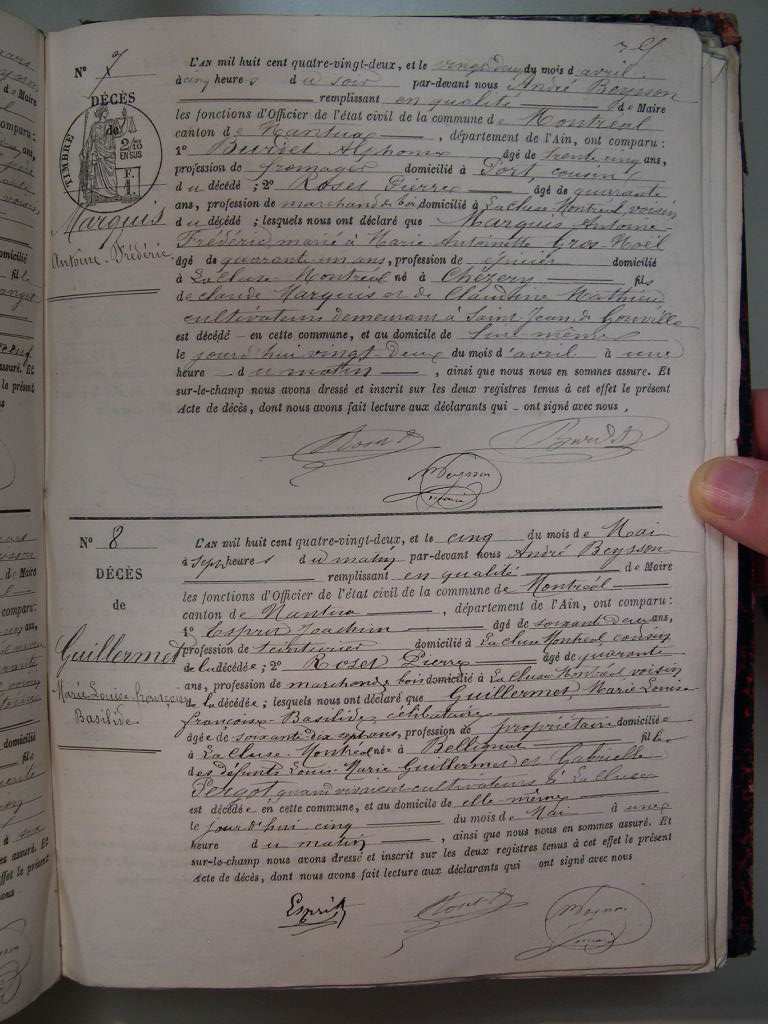 N° 7
DÉCÈS
de
TIMBRE
2/10
EN SUS
F.
1.
Marquis
Antoine-Frédéric
L'AN mil huit cent quatre-vingt-deux, et le vingt deux du mois d avril
à cinq heures du soir par-devant nous André Beysson
remplissant en qualité de Maire
les fonctions d'Officier de l'état civil de la commune de Montréal
canton de Nantua, département de l'Ain, ont comparu :
1° Alphonse âgé de trente cinq ans,
profession de fromager domicilié à Port, cousin
du décédé ; 2° Roset Pierre âgé de quarante
ans, profession de marchand de bois domicilié à La Cluse Montréal voisin
du décédé ; lesquels nous ont déclaré que Marquis Antoine
Frédéric marié à Marie Antoinette Gros-
âgé de quarante un ans, profession de épicier domicilié
à La Cluse Montréal né à Chézery fils
de Claude Marquis et de Claudine Mathieu
cultivateurs demeurant à Saint Jean de Gonville
est décédé en cette commune, et au domicile de lui même
le jourd'hui vingt deux du mois d'avril à une
heure du matin, ainsi que nous nous en sommes assuré. Et
sur-le-champ nous avons dressé et inscrit sur les deux registres tenus à cet effet le présent
Acte de décès, dont nous avons fait lecture aux déclarants qui ont signé avec nous.
Roset
Beysson
N° 8
DÉCÈS
de
Guillermet
Marie Louise françoise
Basilide
L'AN mil huit cent quatre-vingt-deux, et le cinq du mois de Mai
à sept heures du matin par-devant nous André Beysson
remplissant en qualité de Maire
les fonctions d'Officier de l'état civil de la commune de Montréal
canton de Nantua, département de l'Ain, ont comparu :
1° Esprit Joachim âgé de soixante deux ans,
profession de serrurier domicilié à La Cluse Montréal cousin
de la décédée ; 2° Roset Pierre âgé de quarante
ans, profession de marchand de bois domicilié à La Cluse Montréal voisin
de la décédée ; lesquels nous ont déclaré que Guillermet Marie Louise
françoise Basilide, célibataire
âgée de soixante dix sept ans, profession de propriétaire domiciliée
à La Cluse Montréal née à Bellignat fille
des défunts Louis Marie Guillermet et Gabrielle
quand vivaient cultivateurs à La Cluse
est décédée en cette commune, et au domicile de elle même
le jourd'hui cinq du mois de Mai à une
heure du matin, ainsi que nous nous en sommes assuré. Et
sur-le-champ nous avons dressé et inscrit sur les deux registres tenus à cet effet le présent
Acte de décès, dont nous avons fait lecture aux déclarants qui ont signé avec nous
Esprit
Roset
Beysson